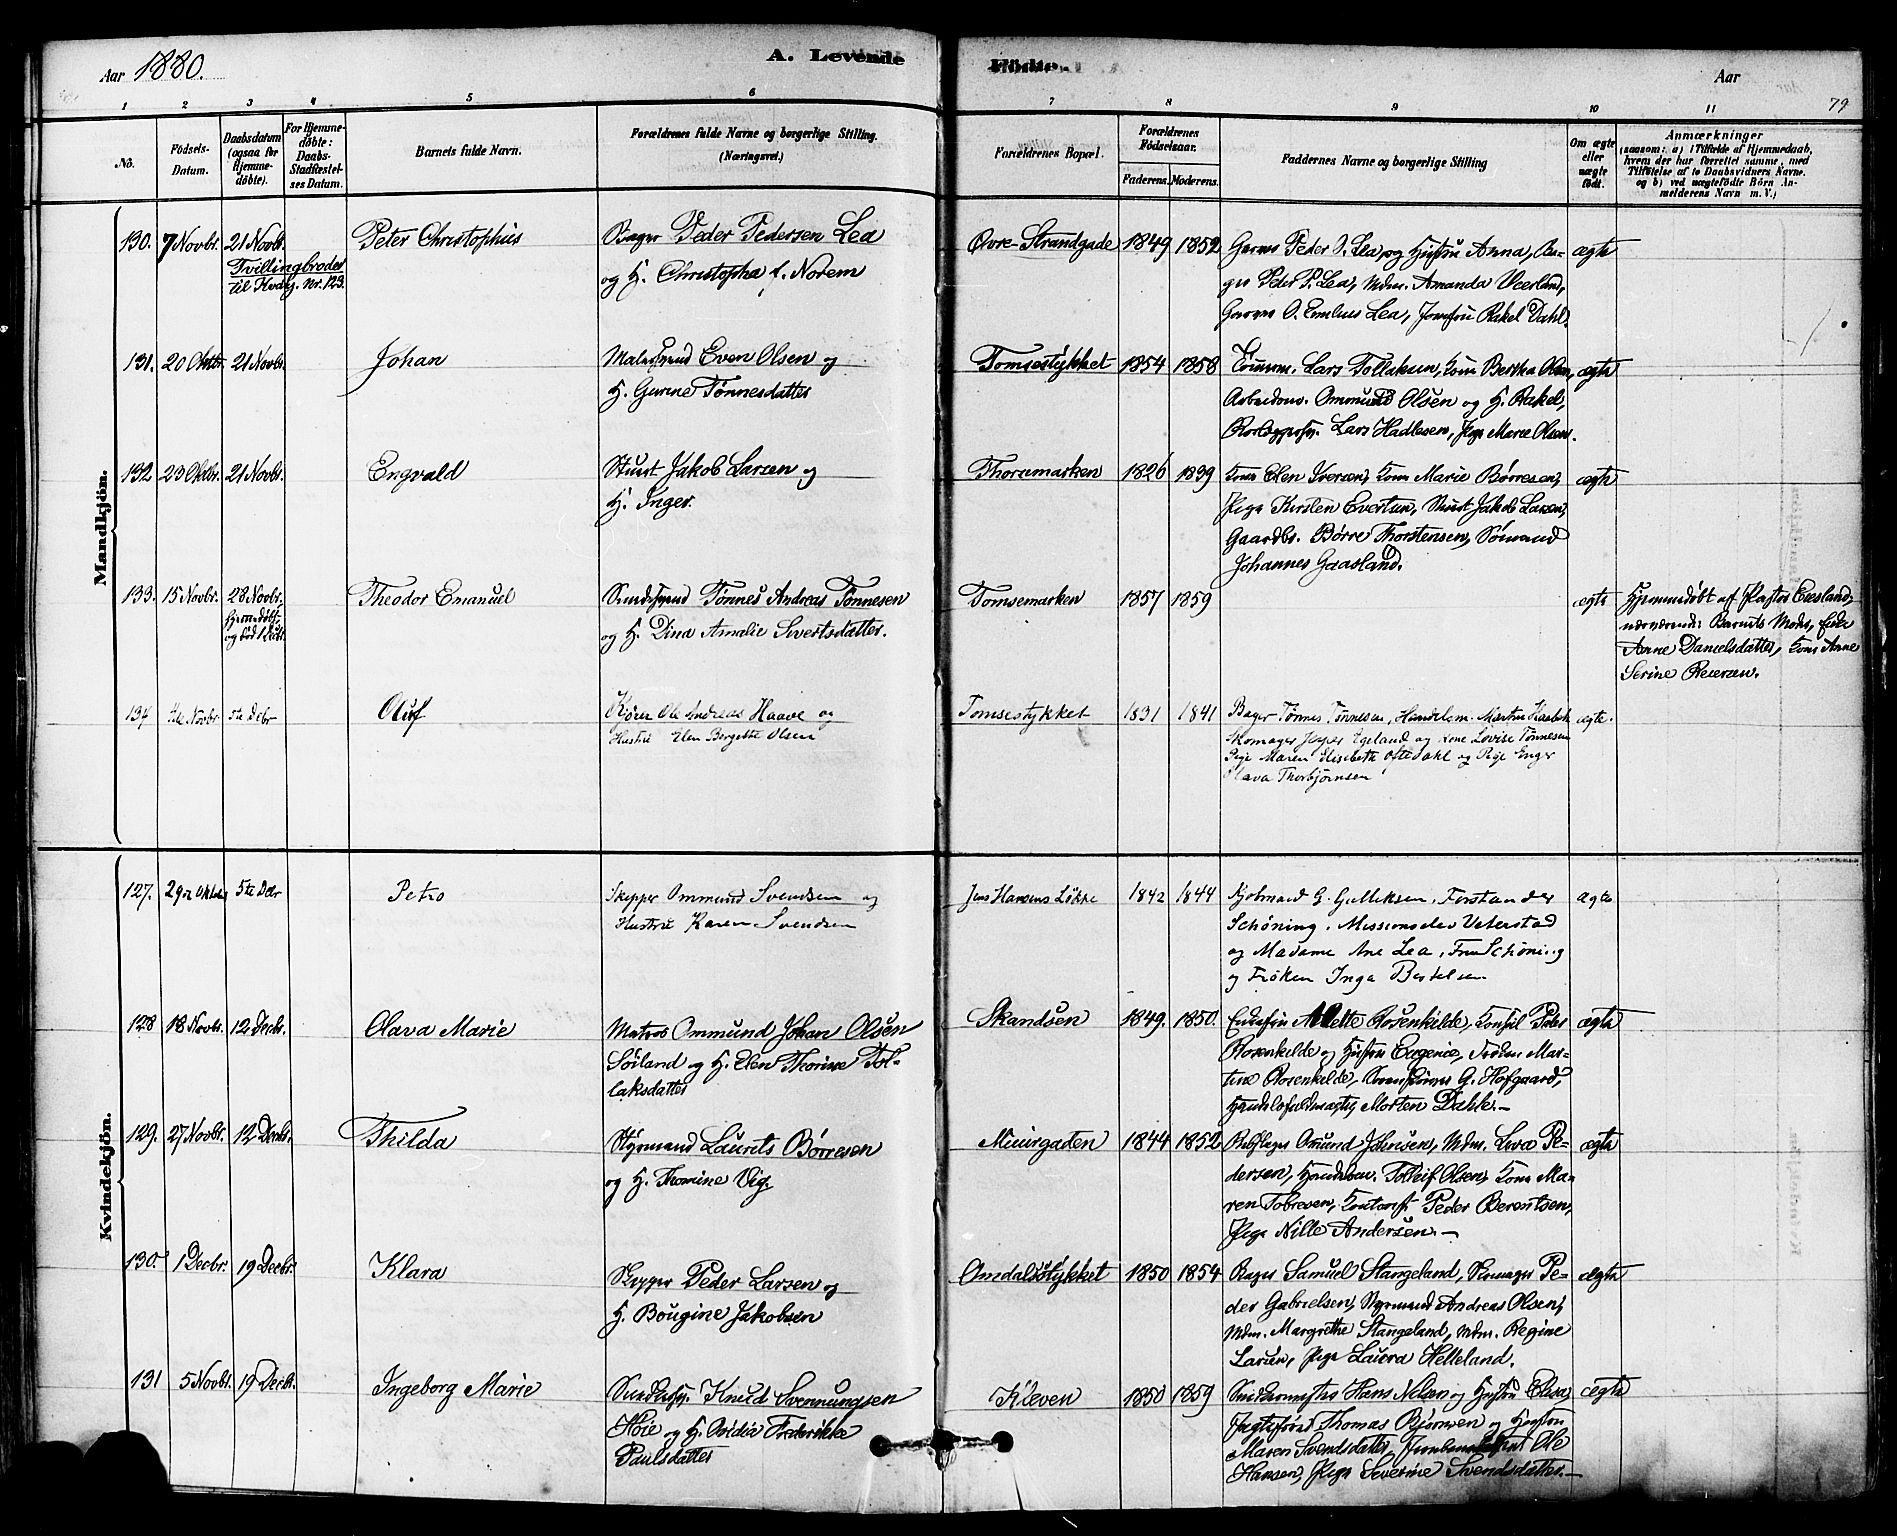 Aar 1880.
A. Levende
Födte.
Aar
79
1 2 3 4 5 6 7 8 9 10 11
No.
Födsels-Datum.
Daabsdatum (ogsaa for Hjemme-döbte).
For Hjemme-döbte: Daabs-Stadfæstel-ses Datum.
Barnets fulde Navn.
Forældrenes fulde Navne og borgerlige Stilling.
(Næringsvei.)
Forældrenes Bopæl.
Forældrenes Födselsaar.
Faderens. Moderens.
Faddernes Navne og borgerlige Stilling
Om ægte eller uægte födt.
Anmærkninger
(saasom: a) i Tilfælde af Hjemmedaab, hvem der har forrettet samme, med Tilföielse af to Daabsvidners Navne, og b) ved uægtefödte Börn An-melderens Navn m. V.)
Mandkjön.
130. 7 Novbr. 21 Novbr. Peter Christophus
Tvillingbroder
til Kvdkj. Nr. 123.
Bager Peder Pedersen Lea
og H. Christopha f. Norem
Øvre-Strandgade 1849 1852
Garver Peder O. Lea, og Hustru Anna, Ba-
ger Peder P. Lea, Mdm. Amanda Veerland,
Garver O. Emlius Lea, Jomfru Rakel Dahl.
ægte
131. 20 Oktbr. 21 Novbr. Johan
Malersvend Even Olsen og
H. Gurine Tønnesdatter
Tomsestykket 1854 1858
Lars Tollaksen, Kone Bertha Olsen,
Arbeidsm. Ommund Olsen og H. Rakel,
Lars Hadlesen, Pige Marie Olsen.
ægte
132 23 Oktbr. 21 Novbr. Engvald
Stuert Jakob Larsen og
H. Inger.
Thorsemarken 1826 1839
Kone Elen Iversen, Kone Marie Børresen,
Pige Kirsten Evertsen, Stuert Jakob Larsen,
Gaardbr. Børre Thorstensen, Sømand
Johannes Gaasland.
ægte
133. 15 Novbr. 28 Novbr. Theodor Emanuel
Hjemmedøbt
og død 1 Decbr.
Smedesvend Tønnes Andreas Tønnesen
og H. Dina Amalie Sivertsdatter.
Tomsemarken 1857 1859
ægte
Hjemmedøbt af Pastor
nærværende: Barnets Moder, Enke
Anne Danielsdatter, Kone Anne
Serine Reiersen.
134 Novbr. 5te Debr Oluf
Kjører Ole Andreas Haave og
Hustru Elen Bergette Olsen
Tomsestykket 1831 1841
Bager Tønnes Tønnesen, Handelsm. Martin
Skomager Jesper Egeland og Kone Lovise Tønnesen
Pige Maren Elisabeth Oftedahl og Pige Enger
Olava Thorbjørnsen
ægte.
Kvindekjön.
127. 29de Oktober 5te Dcbr Petra
Skipper Ommund Svendsen og
Hustru Karen Svendsen
Jens Hansens Løkke 1842 1844
Kjøbmand G. Gulliksen, Forstander
Schøning, Missionselev Veterstad
og Madame Ane Lea, Fru Schøning
og Frøken Inga Bertelsen
ægte
128 18 Novbr. 12 Decbr. Olava Marie
Matros Ommund Johan Olsen
Søiland og H. Elen Thorine Tol-
laksdatter
Skandsen 1849. 1850.
Enkefru Mette Rosenkilde, Konsul Peder
Rosenkilde og Hustru Eugenie, Frøken Mar-
tine Rosenkilde, G. Hofgaard,
Handelsfuldmægtig Morten Dahle.—
ægte
129. 27 Novbr. 12 Decbr. Thilda
Styrmand Laurits Børresen
og H. Thomine Vig.
Muurgaden 1844 1852
Omund Johnsen, Mdm. Lova Pe-
dersen, Handelsm. Tolleif Olsen, Kone Ma-
ren Tobiesen, Kontorist Peder Berentsen,
Pige Nille Andersen.—
ægte
130. 1 Decbr. 19 Decbr. Klara
Skipper Peder Larsen og
H. Bougine Jakobsen
Omdalsstykket 1850 1854
Bager Samuel Stangeland, Skomager Pe-
der Gabrielsen, Styrmand Andreas Olsen,
Mdm. Margrethe Stangeland, Mdm. Regine
Larsen, Pige Laura Helleland.
ægte
131 5 Novbr. 19 Decbr. Ingeborg Marie
Knud Svennungsen
Høie og H. Frederikke
Paulsdatter
Kleven 1850 1859
Smedemester Hans Nilsen og Hustru Elisa,
Thomas Bjørnsen og Hustru
Maren Svendsdatter, Ole
Hansen, Pige Severine Svendsdatter.—
ægte